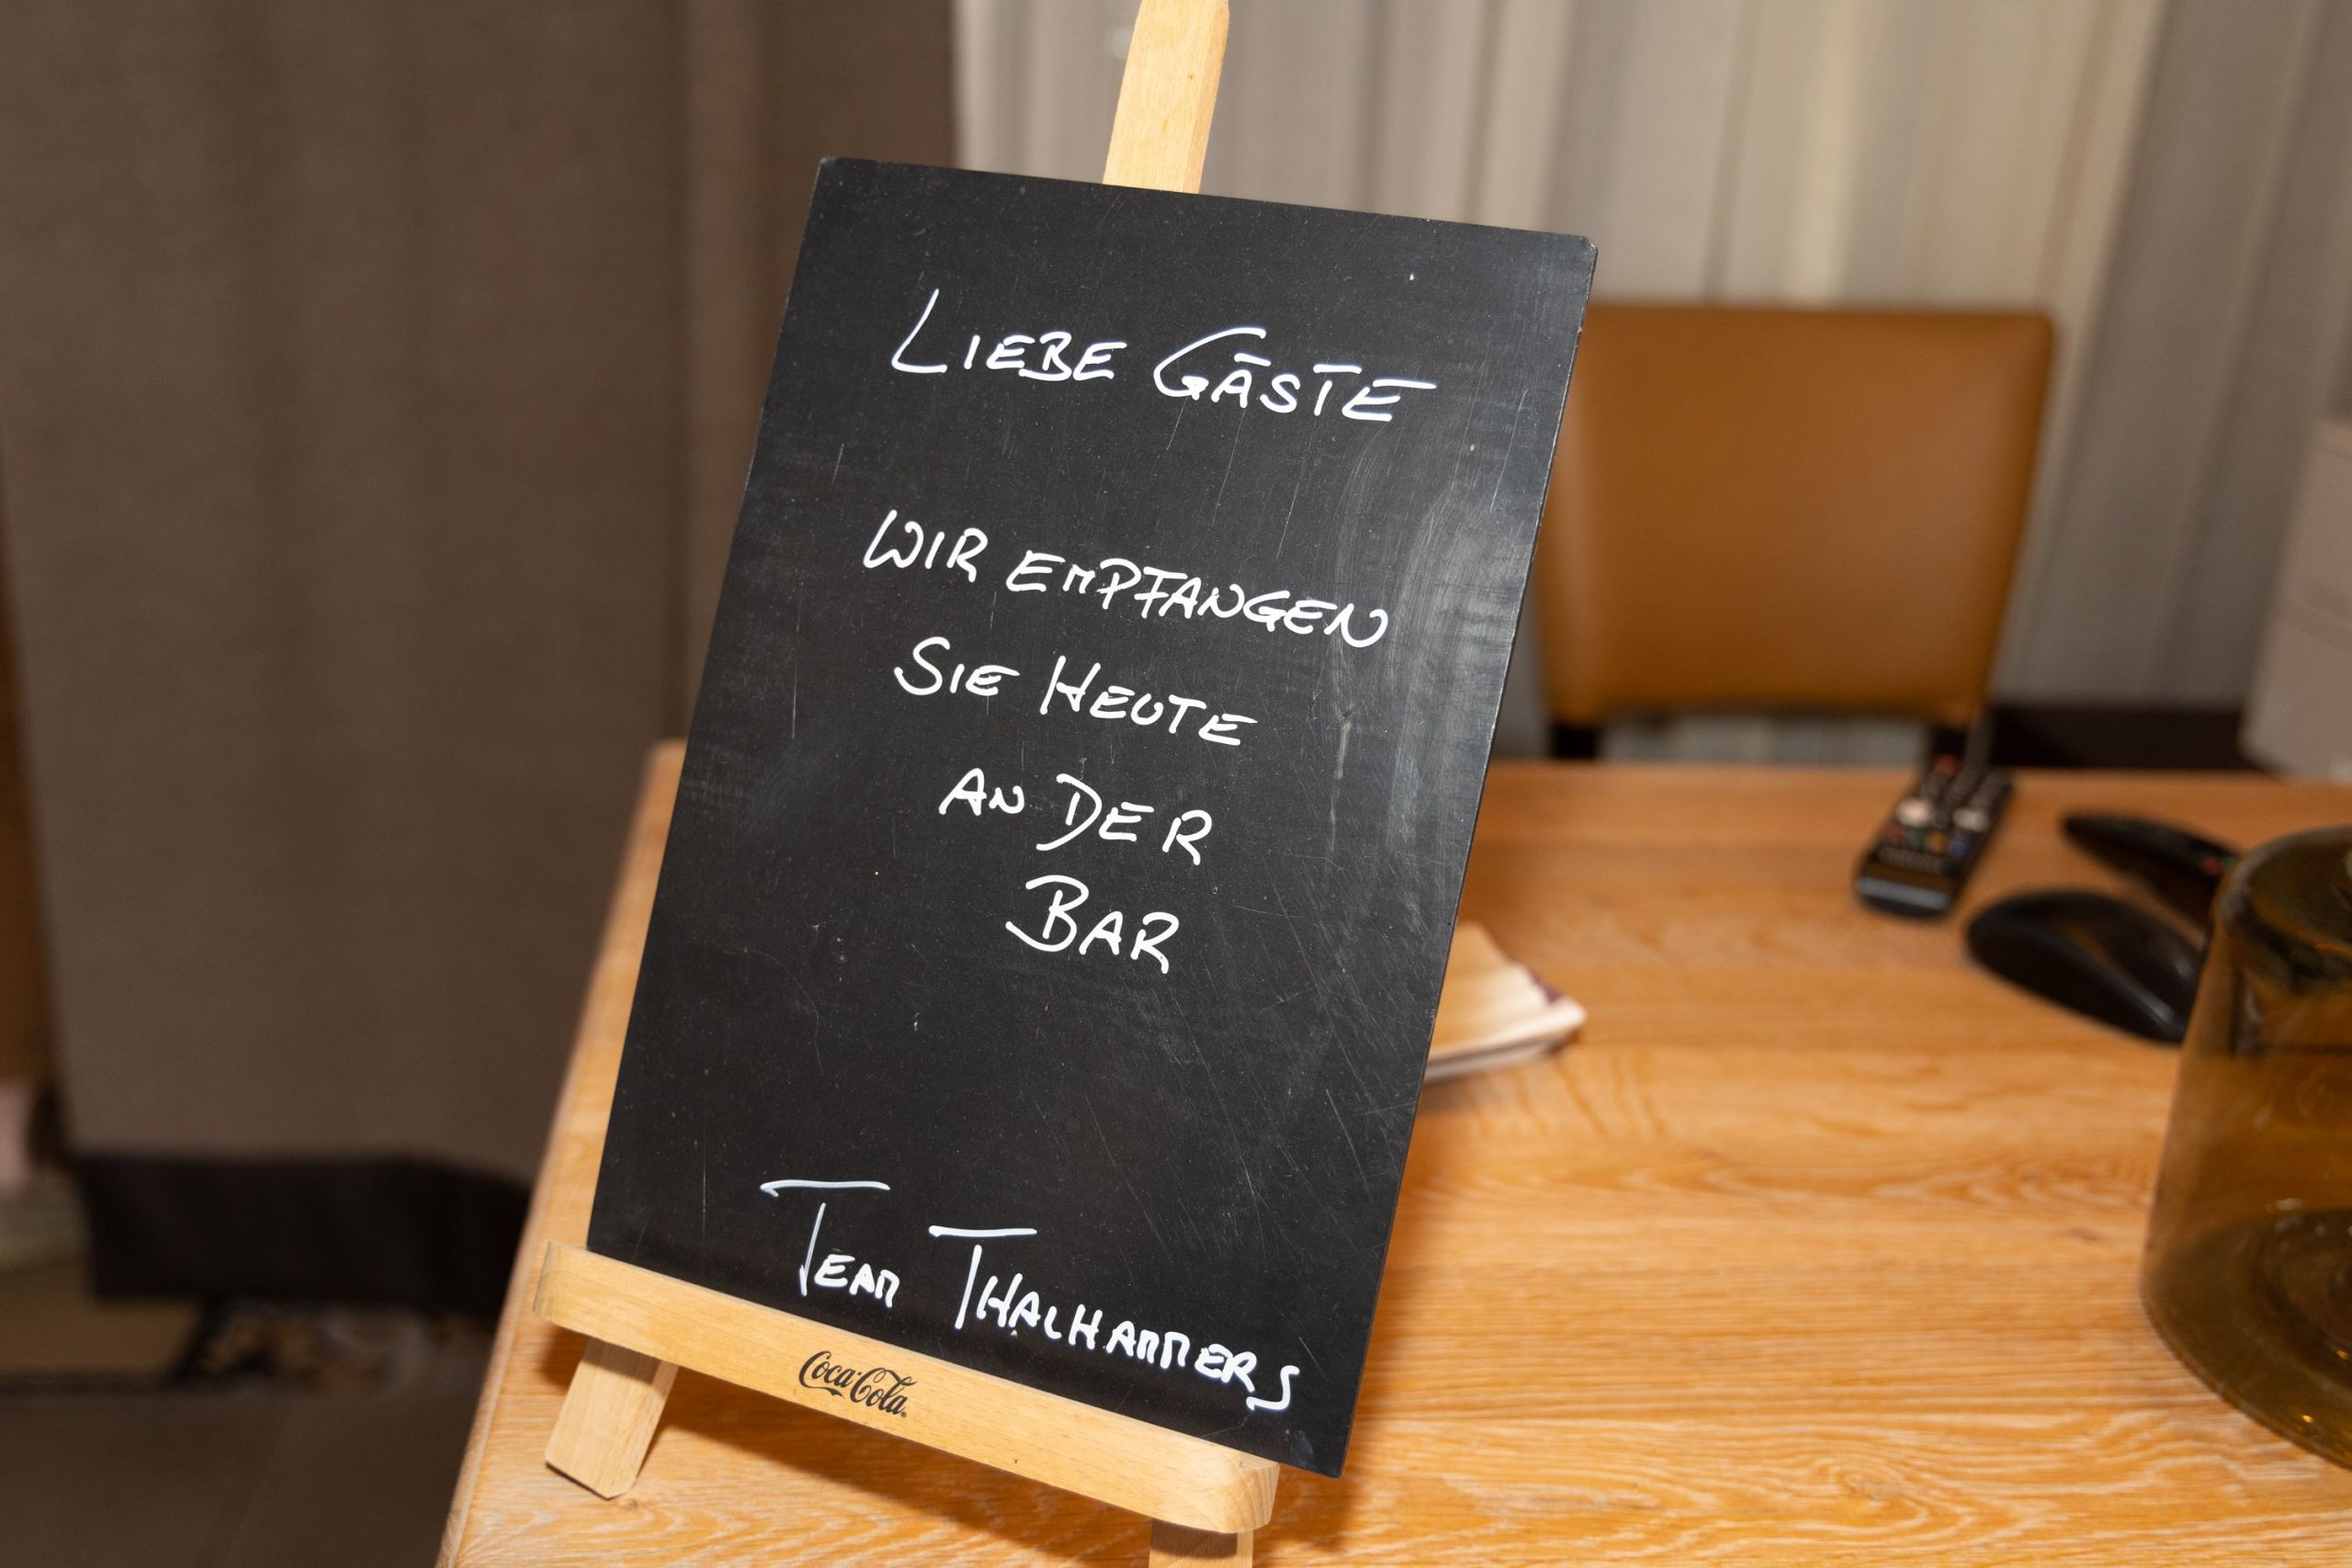 LIEBE GÄSTE
WIR EMPFANGEN
SIE HEUTE
AN DER
BAR
TEAM THALHAMMERS
Coca-Cola